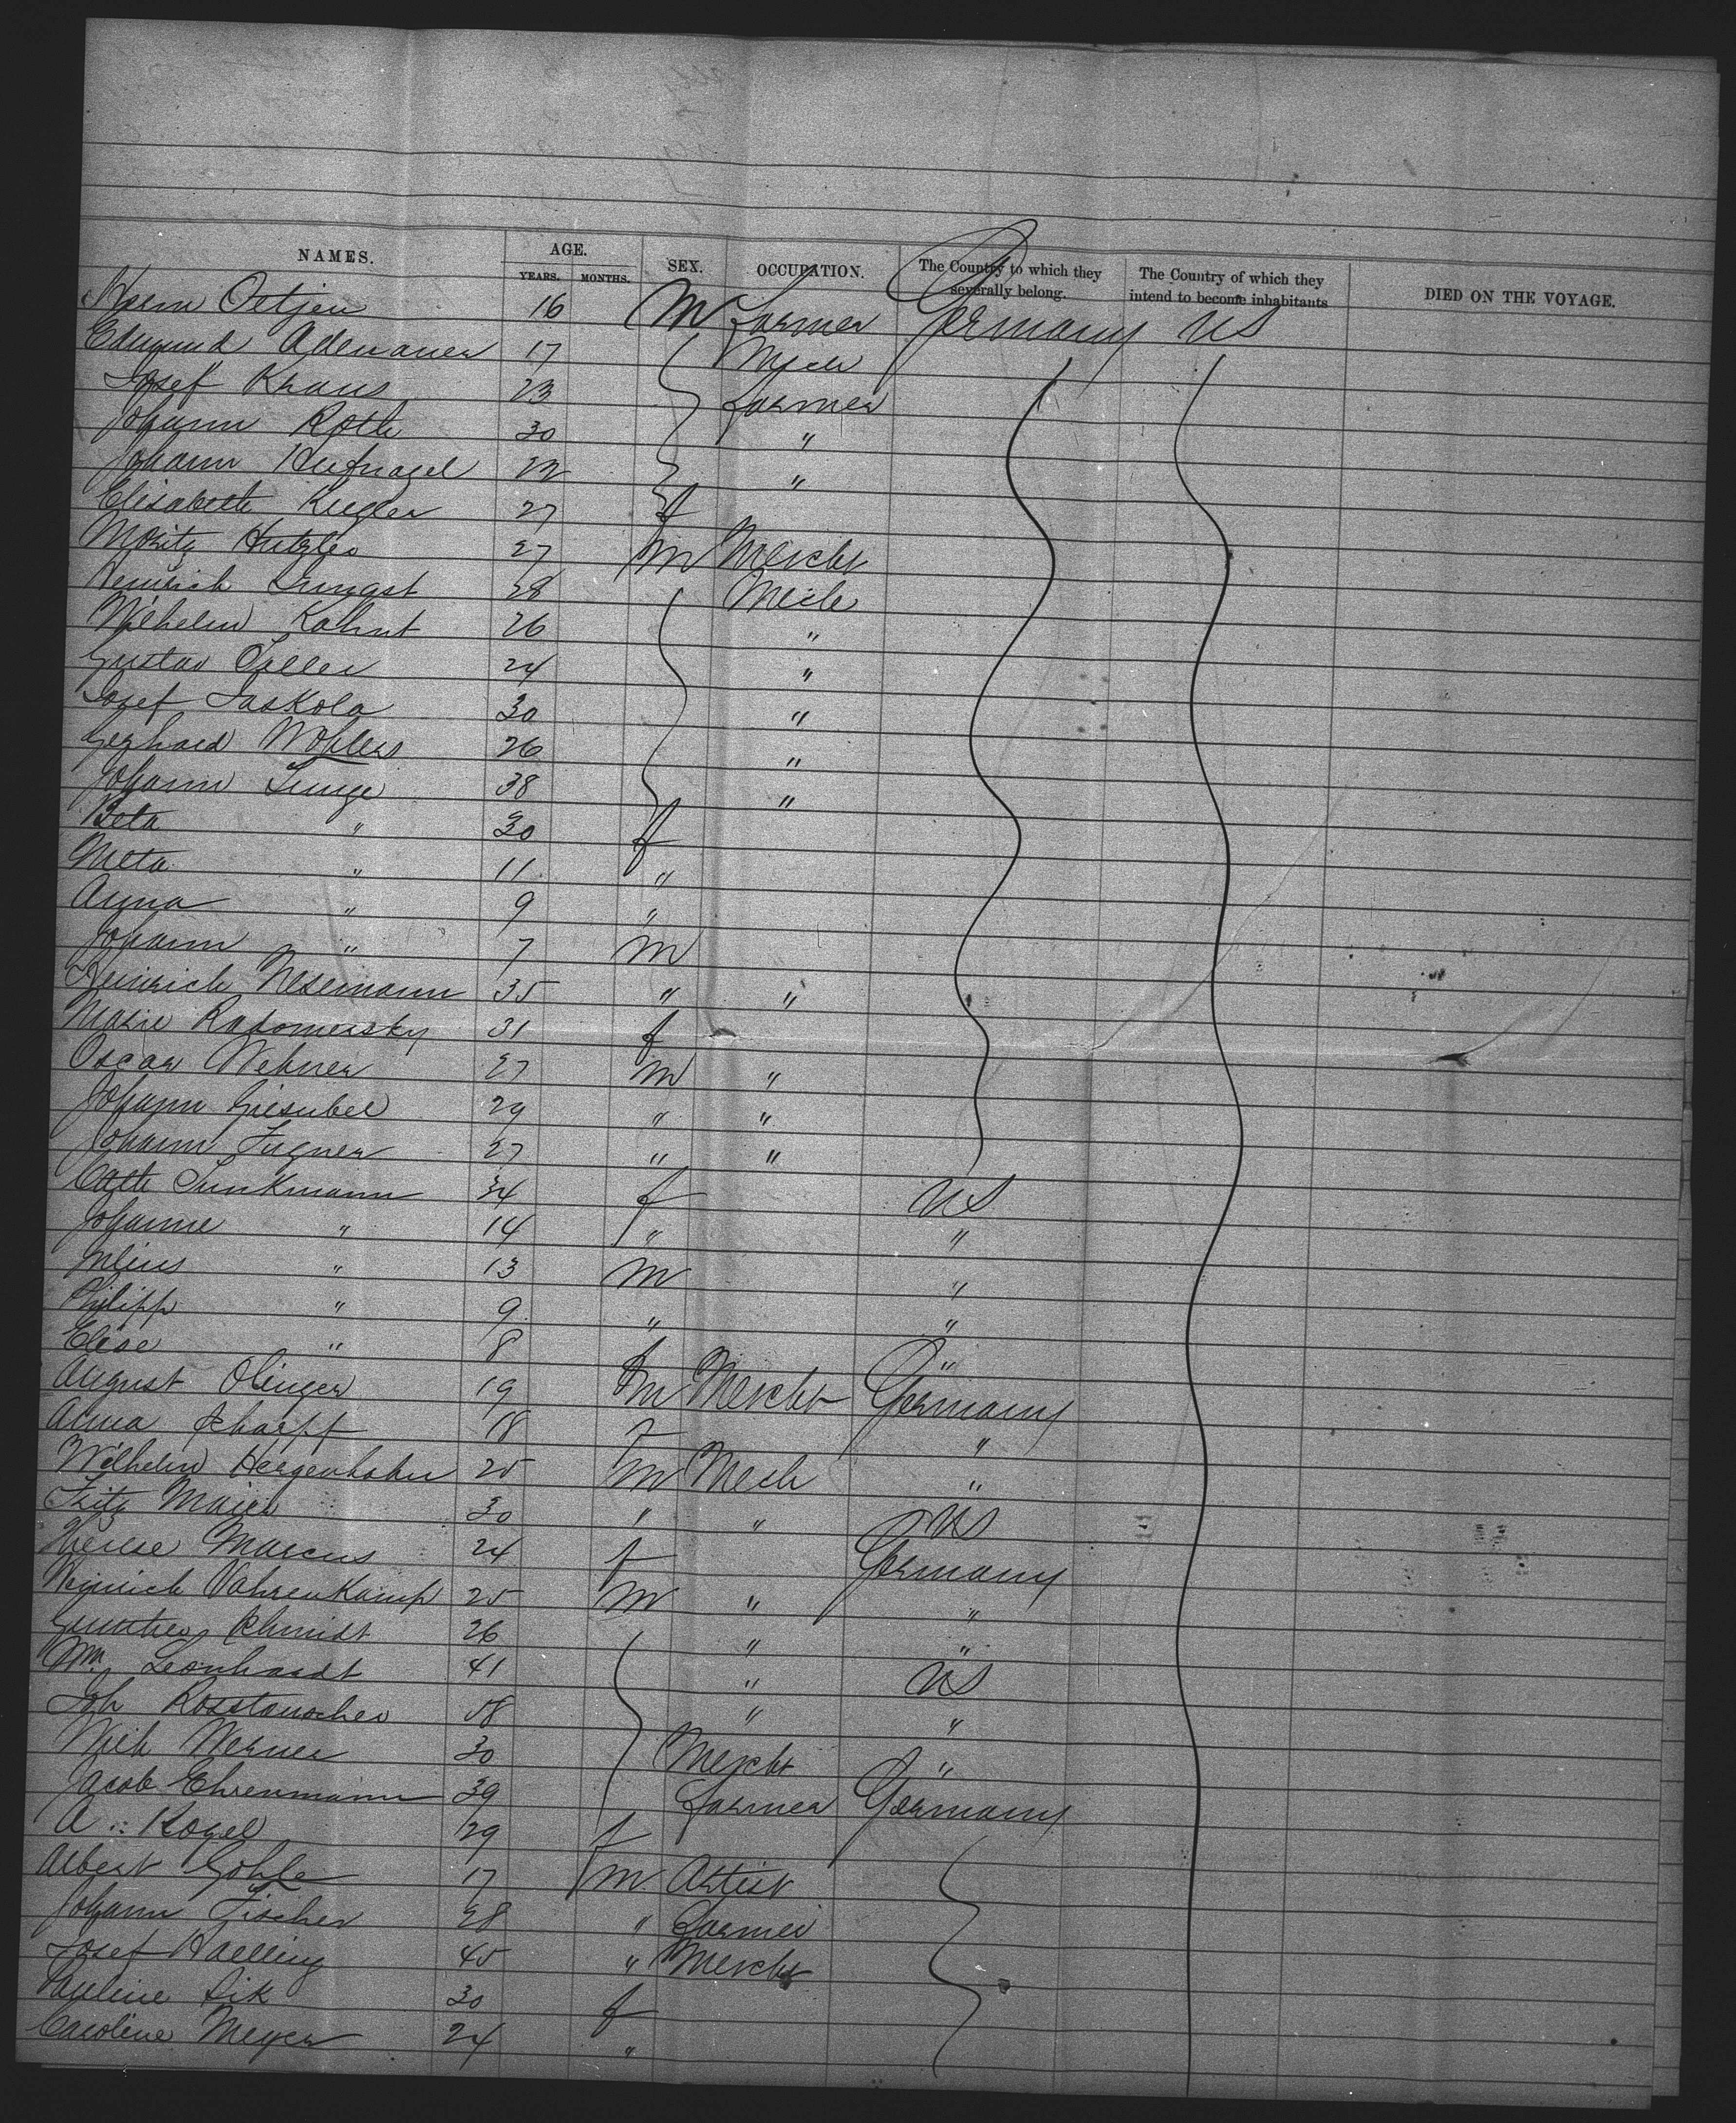 NAMES. AGE. YEARS. MONTHS. SEX. OCCUPATION. The Country to which they severally belong. The Country of which they intend to become inhabitants DIED ON THE VOYAGE.
Herm Oetjen 16 M Farmer Germany US
Edmund Adenauer 17 Mech
Josef Kraus 23 Farmer
Johann Roth 30 "
Johann Hufnagel "
Elisabeth Kugler 27 f
Moritz Hutzler 27 m Mercht
Heinrich 28 Mech
Wilhelm Kohnt 26 "
Gustav 24 "
Josef Laskola 30 "
Gerhard Wohlers 26 "
Johann Lunge 38 "
Beta " 30 f
Meta " 11 "
Anna " 9 "
Johann " 7 m
Heinrich Nesemann 35 " "
Marie Radomersky 31 f
Oscar Wehner 27 m "
Johann Giesubel 29 " "
Johann 27 " "
Cath Lunkmann 34 f US
Johanne " 14 " "
Julius " 13 m "
Philipp " 9 " "
Elise " 8 f "
August Olinger 19 m Mercht Germany
Anna Scharpf 18 f "
Wilhelm Hergenhahn 25 m Mech "
Fritz Maier 30 " " US
Therese Marcus 24 f Germany
Heinrich Vahrenkamp 25 m " "
Gunther Schmidt 26 " "
Wm Leonhardt 41 " US
Joh Rosstauscher 58 " "
Mich Werner 30 Mercht "
Jacob Ehrenmann 39 Farmer Germany
A. Kogel 29 f
Albert Gohle 17 m Artist
Johann Fischer 28 " Farmer
Josef Haelling 45 " Mercht
Pauline Sik 30 f
Caroline Meyer 24 "